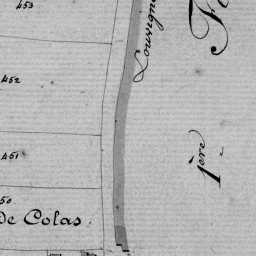 453
452
451
50
De Colas.
Louvigné
1ère